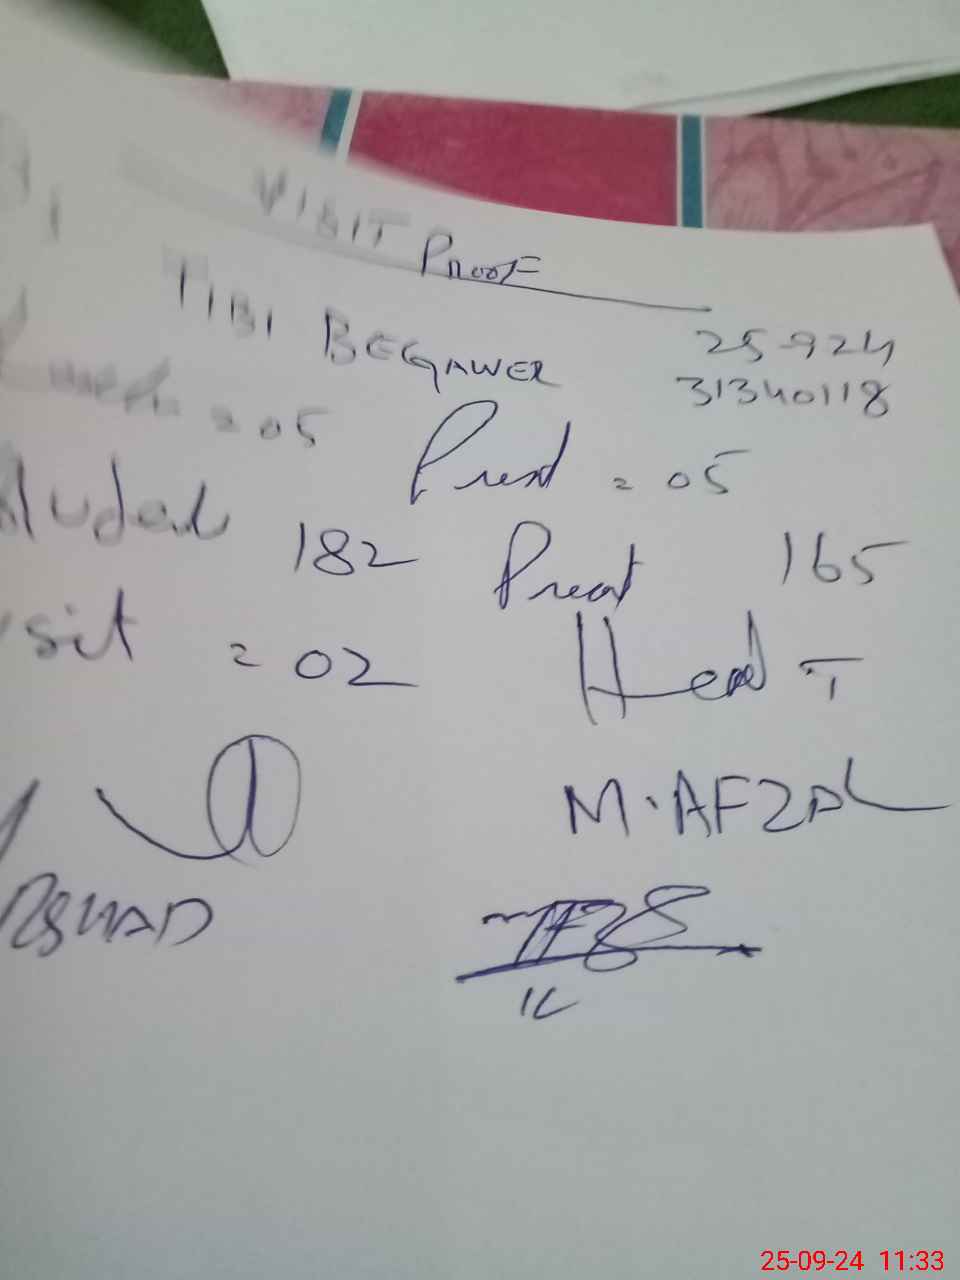 VISIT PROOF
TIBI BEGAWER 25-924
31340118
= 05 Prest = 05
182 Preat 165
sit = 02 Head T
M. AFZAL
RSHAD
25-09-24 11:33